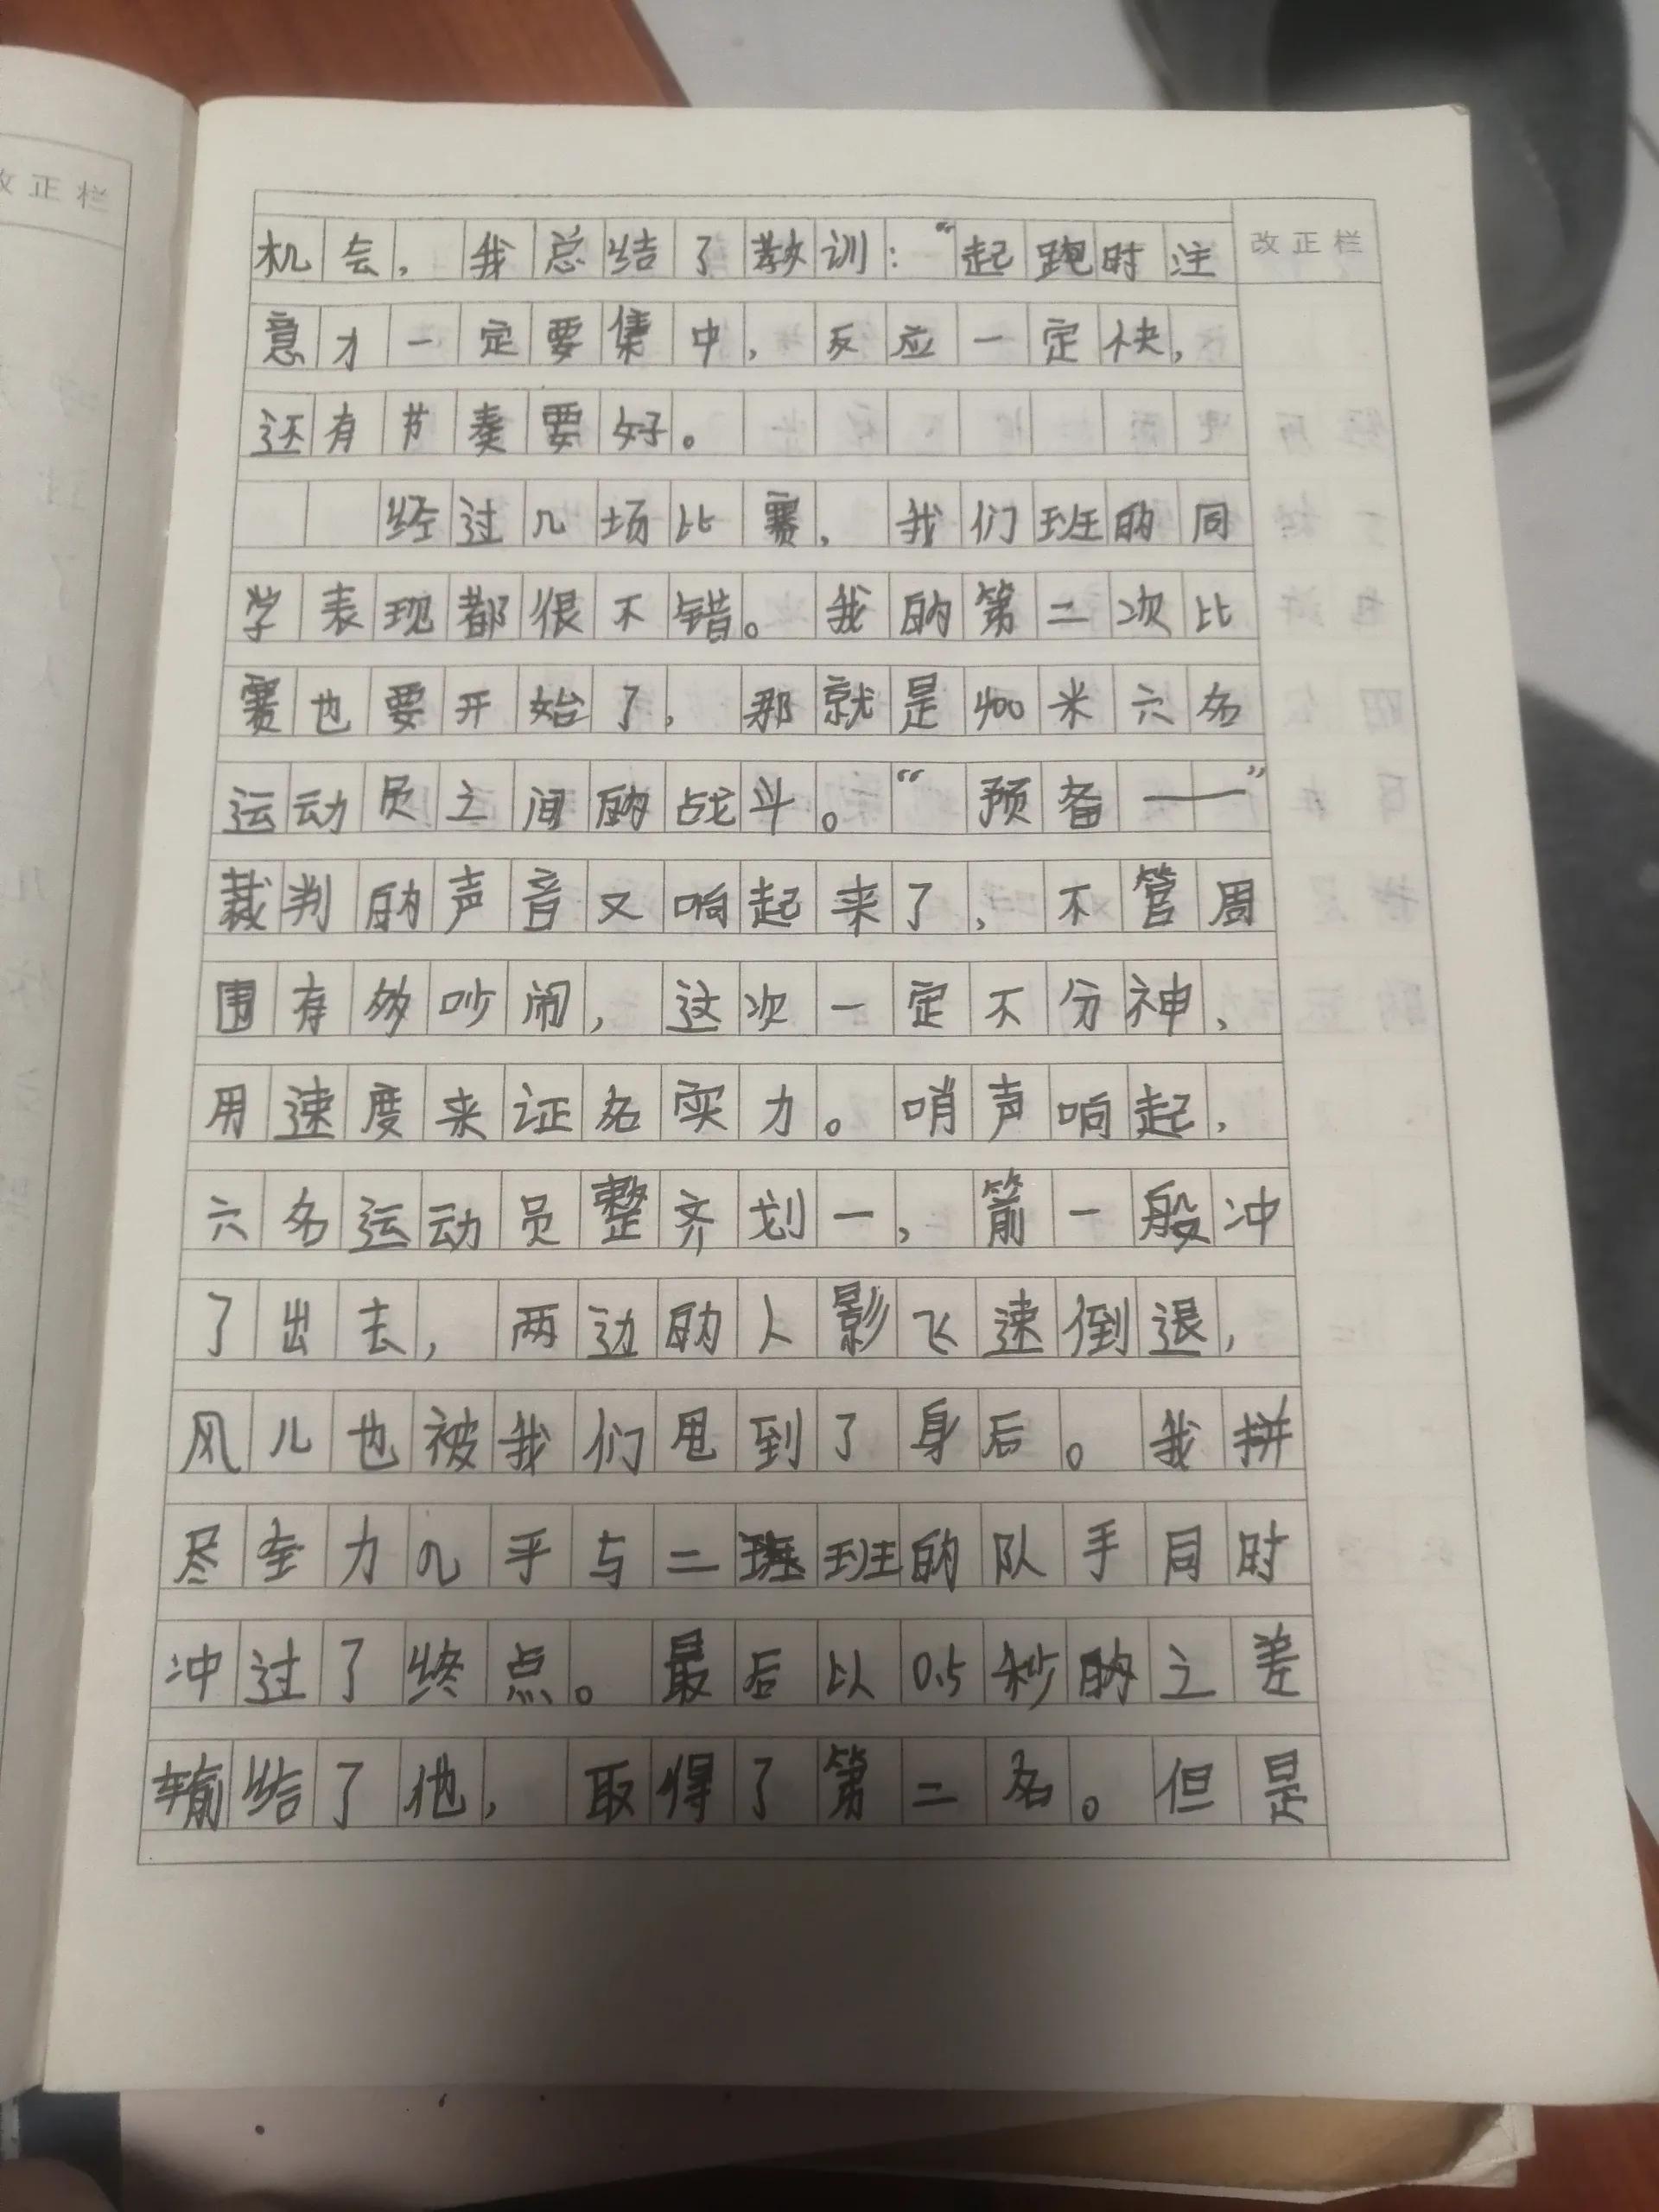 改正栏
机会，我总结了教训：“起跑时注
改正栏
意才一定要集中，反应一定快，
还有节奏要好。
经过几场比赛，我们班的同
学表现都很不错。我的第二次比
赛也要开始了，那就是400米六名
运动员之间的战斗。“预备——”
裁判的声音又响起来了，不管周
围有多吵闹，这次一定不分神，
用速度来证名实力。哨声响起，
六名运动员整齐划一，箭一般冲
了出去，两边的人影飞速倒退，
风儿也被我们甩到了身后。我拼
尽全力几乎与二班班的队手同时
冲过了终点。最后以0.5秒的之差
输给了他，取得了第二名。但是